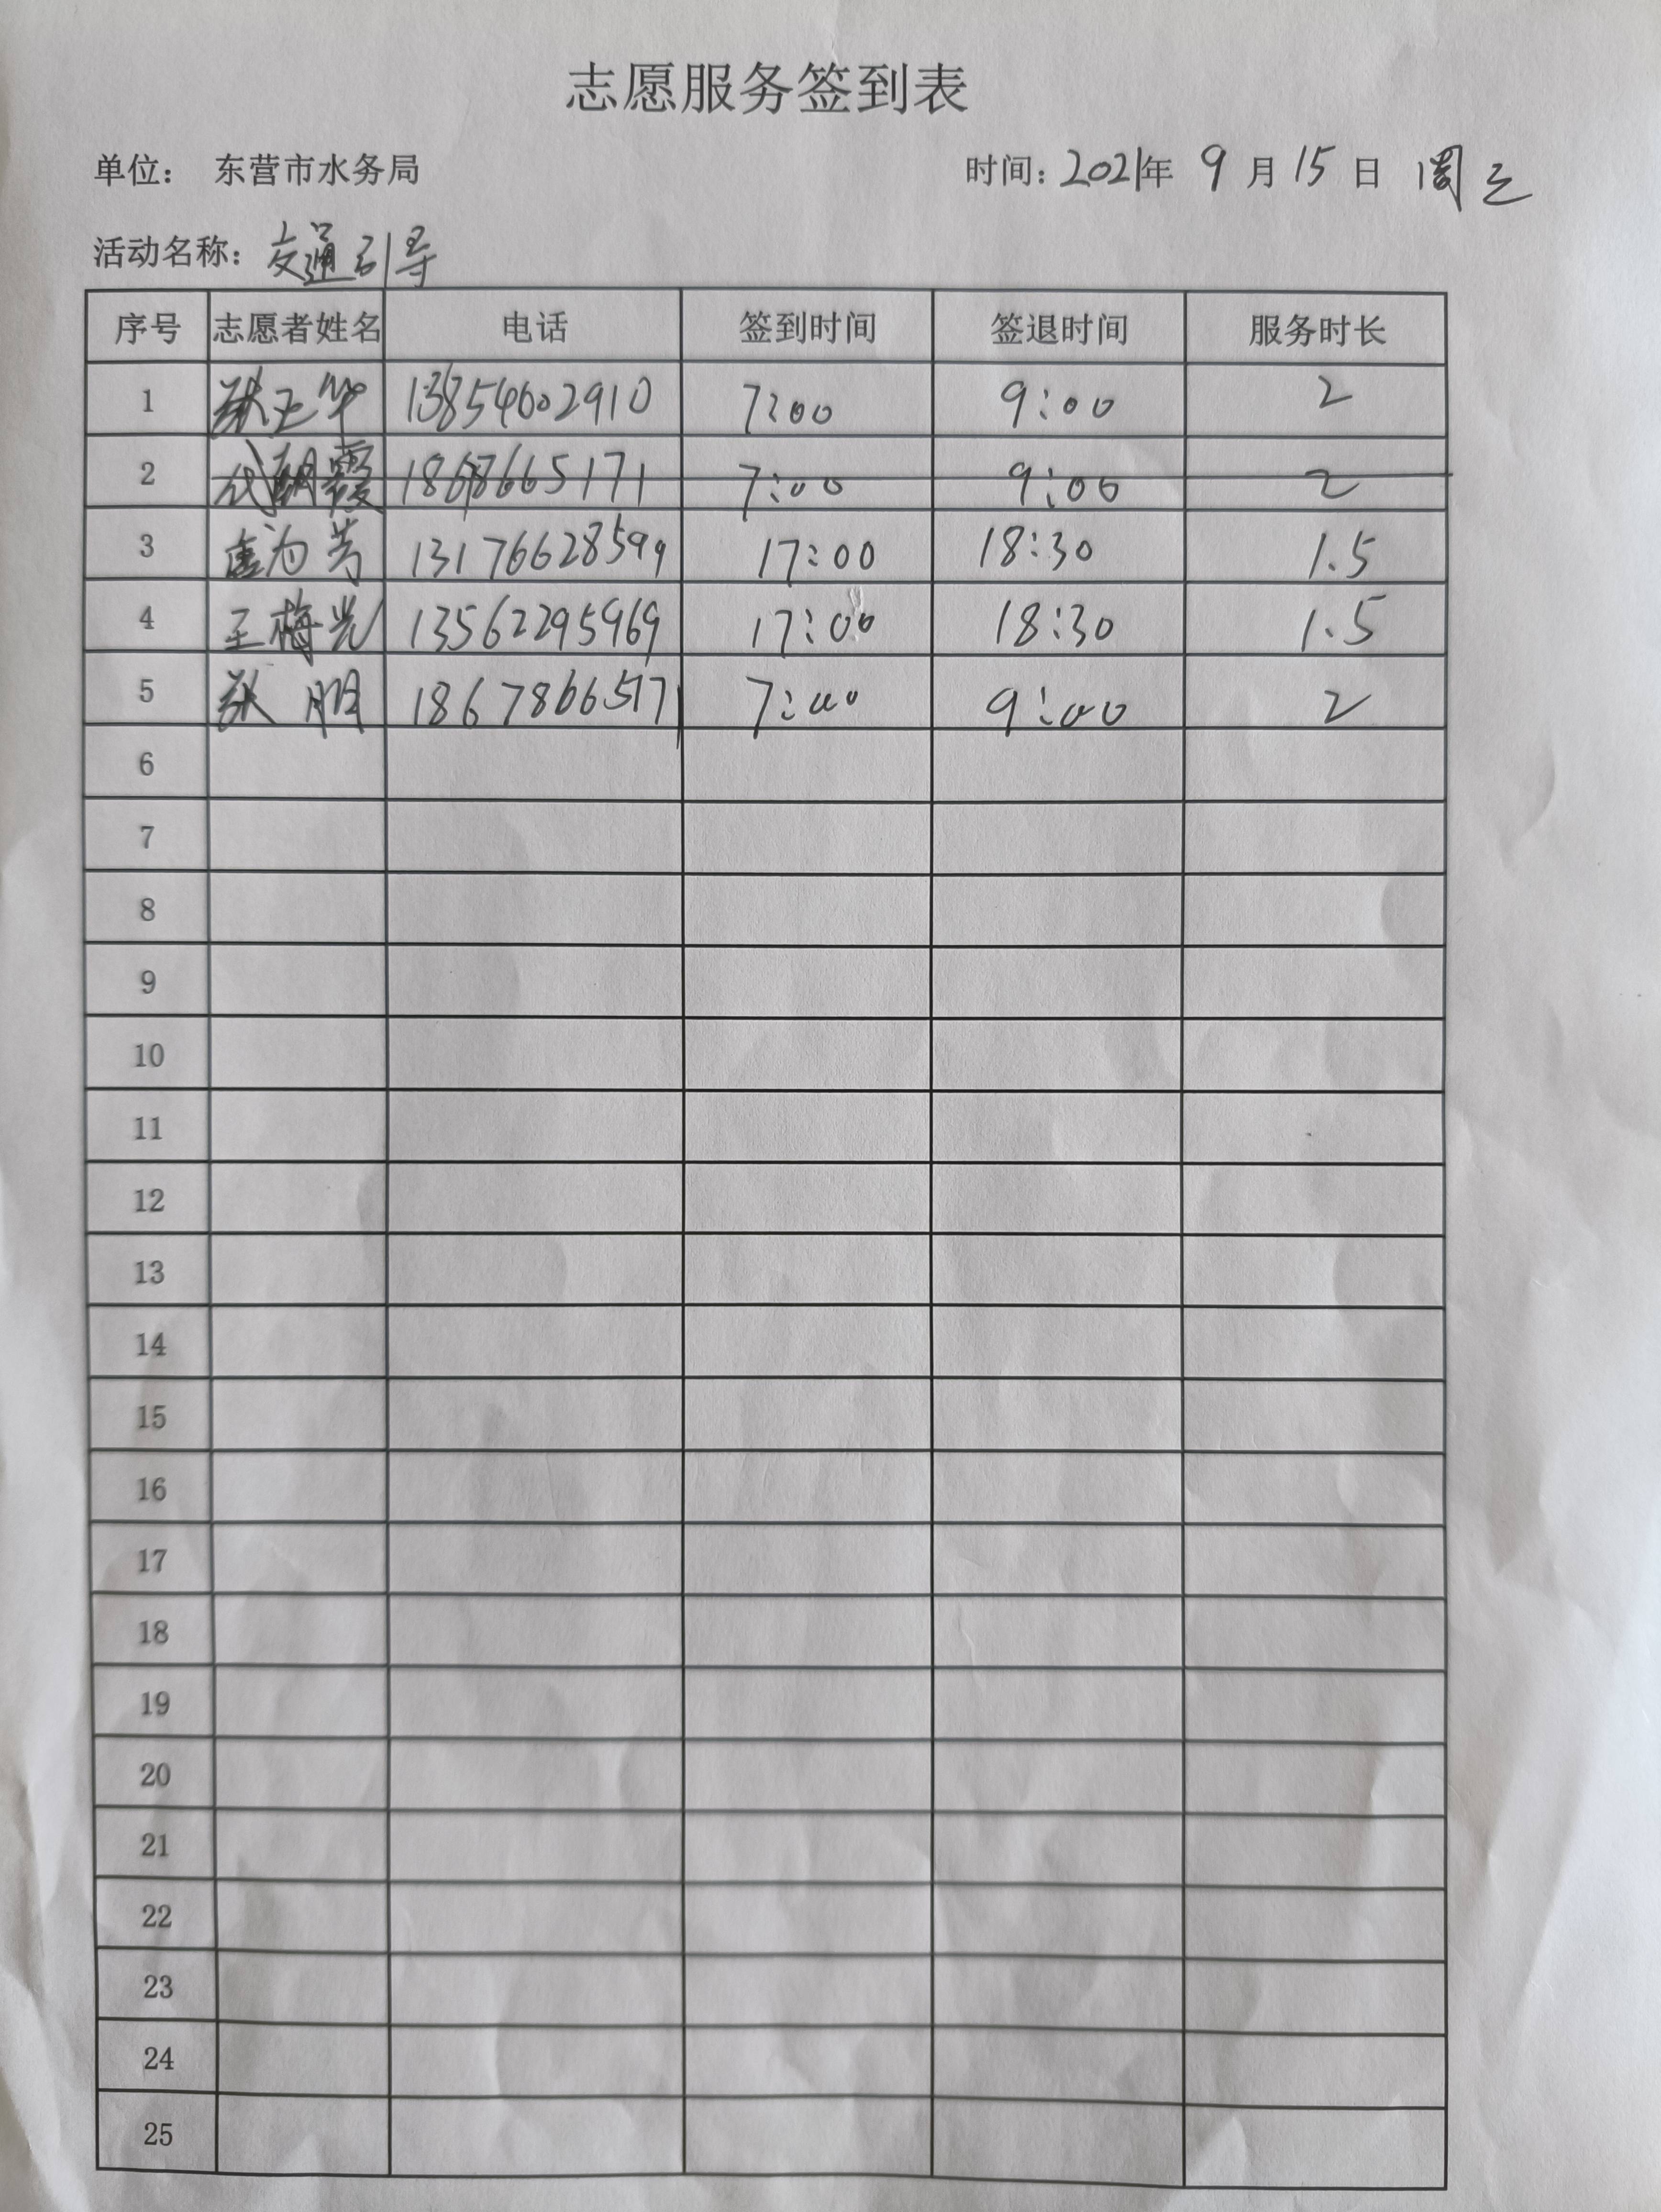 志愿服务签到表
单位： 东营市水务局 时间：2021年 9 月 15 日 周三
活动名称：交通引导
序号 志愿者姓名 电话 签到时间 签退时间 服务时长
1 张玉华 13854602910 7:00 9:00 2
2 代朝霞 18678665171 7:00 9:00 2
3 13176628599 17:00 18:30 1.5
4 王梅光 13562295969 17:00 18:30 1.5
5 张 18678665171 7:00 9:00 2
6
7
8
9
10
11
12
13
14
15
16
17
18
19
20
21
22
23
24
25